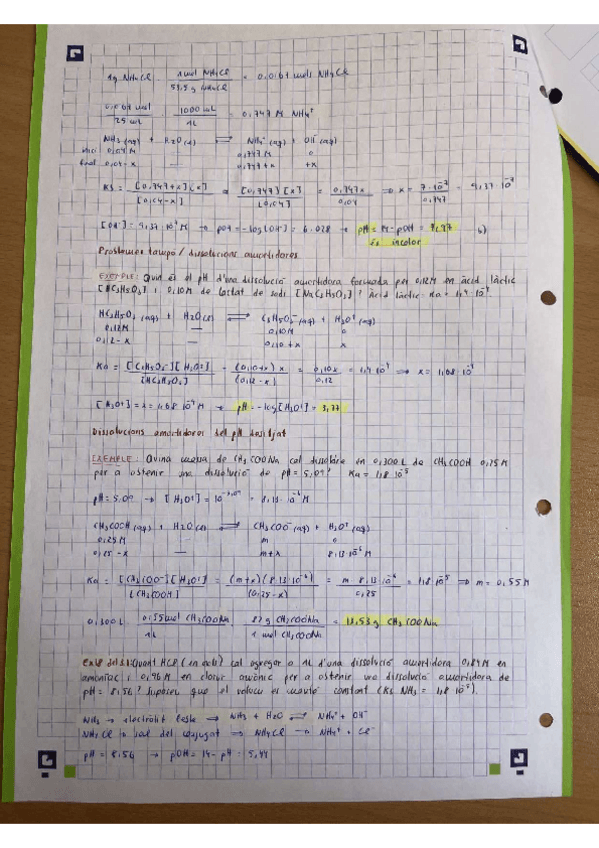 1g NH₄Cl · 1 mol NH₄Cl / 53,5 g NH₄Cl = 0,0187 mols NH₄Cl
25 mL · 1000 mL / 1L = 0,747 M NH₄⁺
NH₃ (aq) + H₂O (l) ⇌ NH₄⁺ (aq) + OH⁻ (aq)
inici 0,04 M — 0,747 M 0
final 0,04-x — 0,747+x +x
[0,747+x][x] / [0,04-x] = [0,747][x] / [0,04] = 0,747x / 0,04 ⇒ x = 7·10⁻⁷ / 0,747 = 9,37·10⁻⁷
[OH⁻] = 9,37·10⁻⁷ M → pOH = -log[OH⁻] = 6.028 → pH = 14-pOH = 7,97 b)
és incolor
Problemes tampó / dissolucions amortidores
EXEMPLE: Quin és el pH d'una dissolució amortidora formada per 0,12M en àcid làctic
[HC₃H₅O₃] i 0,10M de lactat de sodi [NaC₃H₅O₃]? Àcid làctic Ka = 1,4·10⁻⁴
HC₃H₅O₃ (aq) + H₂O (l) ⇌ C₃H₅O₃⁻ (aq) + H₃O⁺ (aq)
0,12M — 0,10M 0
0,12-x — 0,10+x x
Ka = [C₃H₅O₃⁻][H₃O⁺] / [HC₃H₅O₃] = (0,10+x)x / (0,12-x) = 0,10x / 0,12 = 1,4·10⁻⁴ ⇒ x = 1,68·10⁻⁴
[H₃O⁺] = x = 1,68·10⁻⁴ M → pH = -log[H₃O⁺] = 3,77
Dissolucions amortidores del pH desitjat
EXEMPLE: Quina massa de CH₃COONa cal dissoldre en 0,300 L de CH₃COOH 0,25M
per a obtenir una dissolució de pH = 5,09? Ka = 1,8·10⁻⁵
pH = 5,09 → [H₃O⁺] = 10⁻⁵·⁰⁹ = 8,13·10⁻⁶ M
CH₃COOH (aq) + H₂O (l) ⇌ CH₃COO⁻ (aq) + H₃O⁺ (aq)
0,25M — m 0
0,25-x — m+x 8,13·10⁻⁶ M
Ka = [CH₃COO⁻][H₃O⁺] / [CH₃COOH] = (m+x)(8,13·10⁻⁶) / (0,25-x) = m·8,13·10⁻⁶ / 0,25 = 1,8·10⁻⁵ ⇒ m = 0,55M
0,300L · 0,55 mol CH₃COONa / 1L · 82 g CH₃COONa / 1 mol CH₃COONa = 13,53 g CH₃COONa
Quant HCl (en mols) cal agregar a 1L d'una dissolució amortidora 0,84M en
amoníac i 0,96M en clorur amònic per a obtenir una dissolució amortidora de
pH = 8,56? Suposeu que el volum es manté constant (Kb NH₃ = 1,8·10⁻⁵).
NH₃ → electròlit feble ⇒ NH₃ + H₂O ⇌ NH₄⁺ + OH⁻
NH₄Cl → sal del conjugat ⇒ NH₄Cl → NH₄⁺ + Cl⁻
pH = 8,56 → pOH = 14 - pH = 5,44